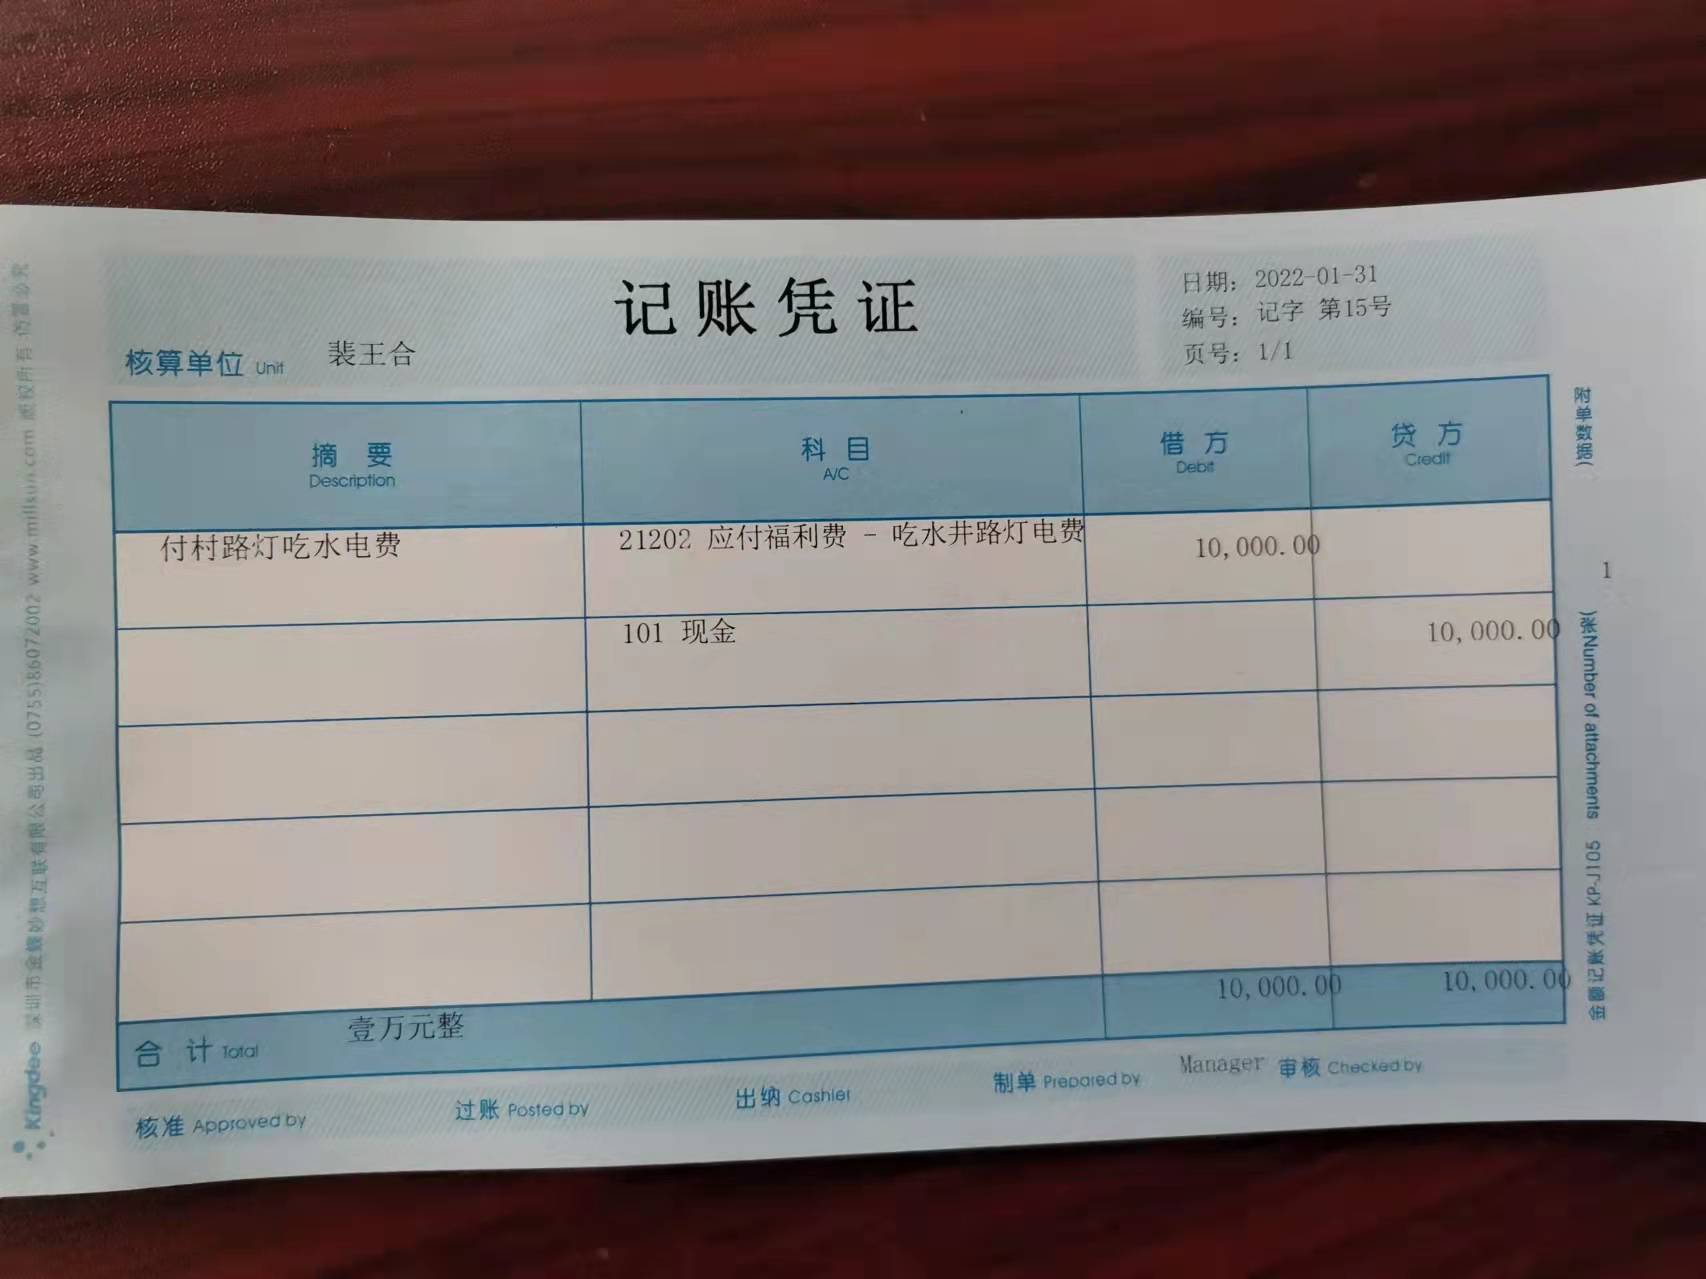 记账凭证
日期: 2022-01-31
编号: 记字 第15号
页号: 1/1
核算单位 Unit 裴王合
摘 要 科 目 借 方 贷 方
Description A/C Debit Credit
付村路灯吃水电费 21202 应付福利费 - 吃水井路灯电费 10,000.00
101 现金 10,000.00
合 计 Total 壹万元整 10,000.00 10,000.00
核准 Approved by 过账 Posted by 出纳 Cashier 制单 Prepared by Manager 审核 Checked by
附单数据) 1 张)Number of attachments 金额记账凭证 KP-J105
Kingdee 深圳市金蝶妙想互联有限公司出品 (0755)86072002 www.millsun.com 版权所有 仿冒必究